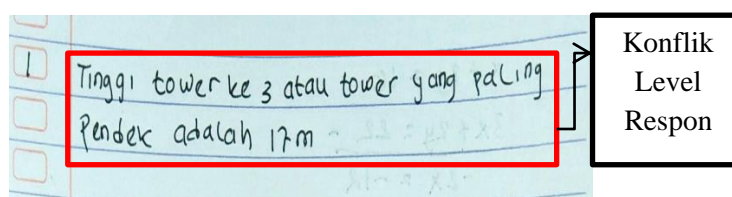 1
Tinggi tower ke 3 atau tower yang paling
Pendek adalah 17m
Konflik
Level
Respon